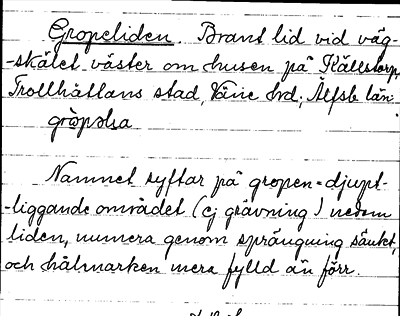 Gropeliden. Brant lid vid väg-
-skälet väster om husen på Källstorp,
Trollhättans stad, Väne hd; Älfsb. län.
Namnet syftar på gropen = djupt-
-liggande området (ej grävning) nedom
liden, numera genom sprängning sänkt,
och hålmarken mera fylld än förr.